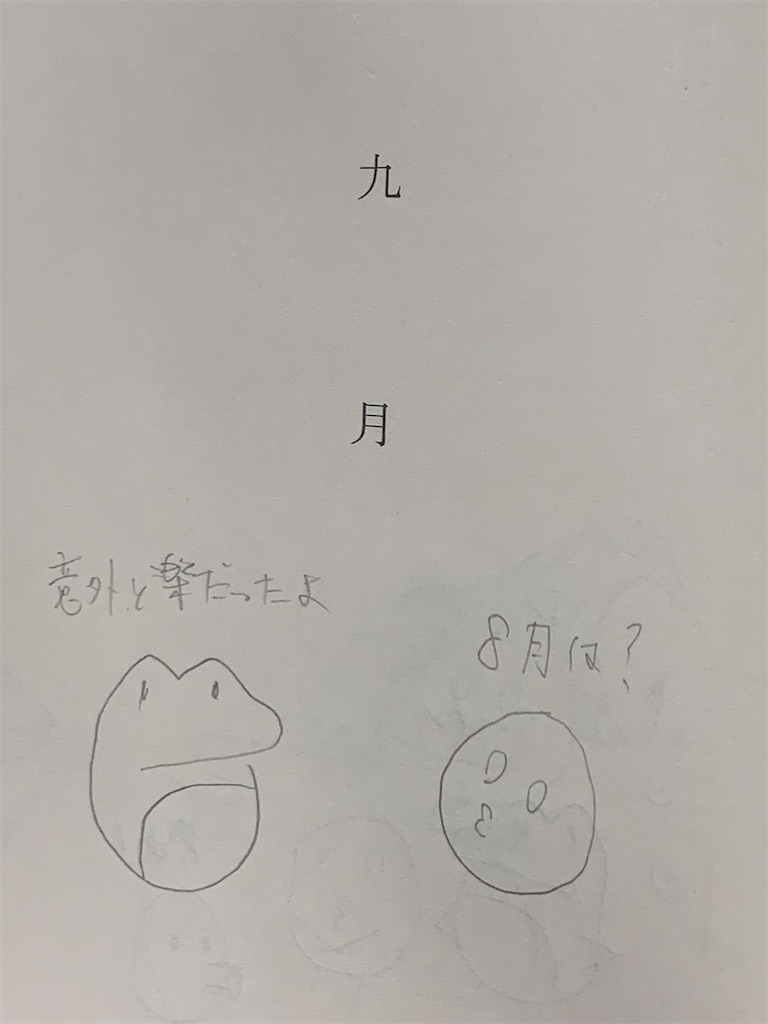 九月
意外と楽だったよ
8月は?